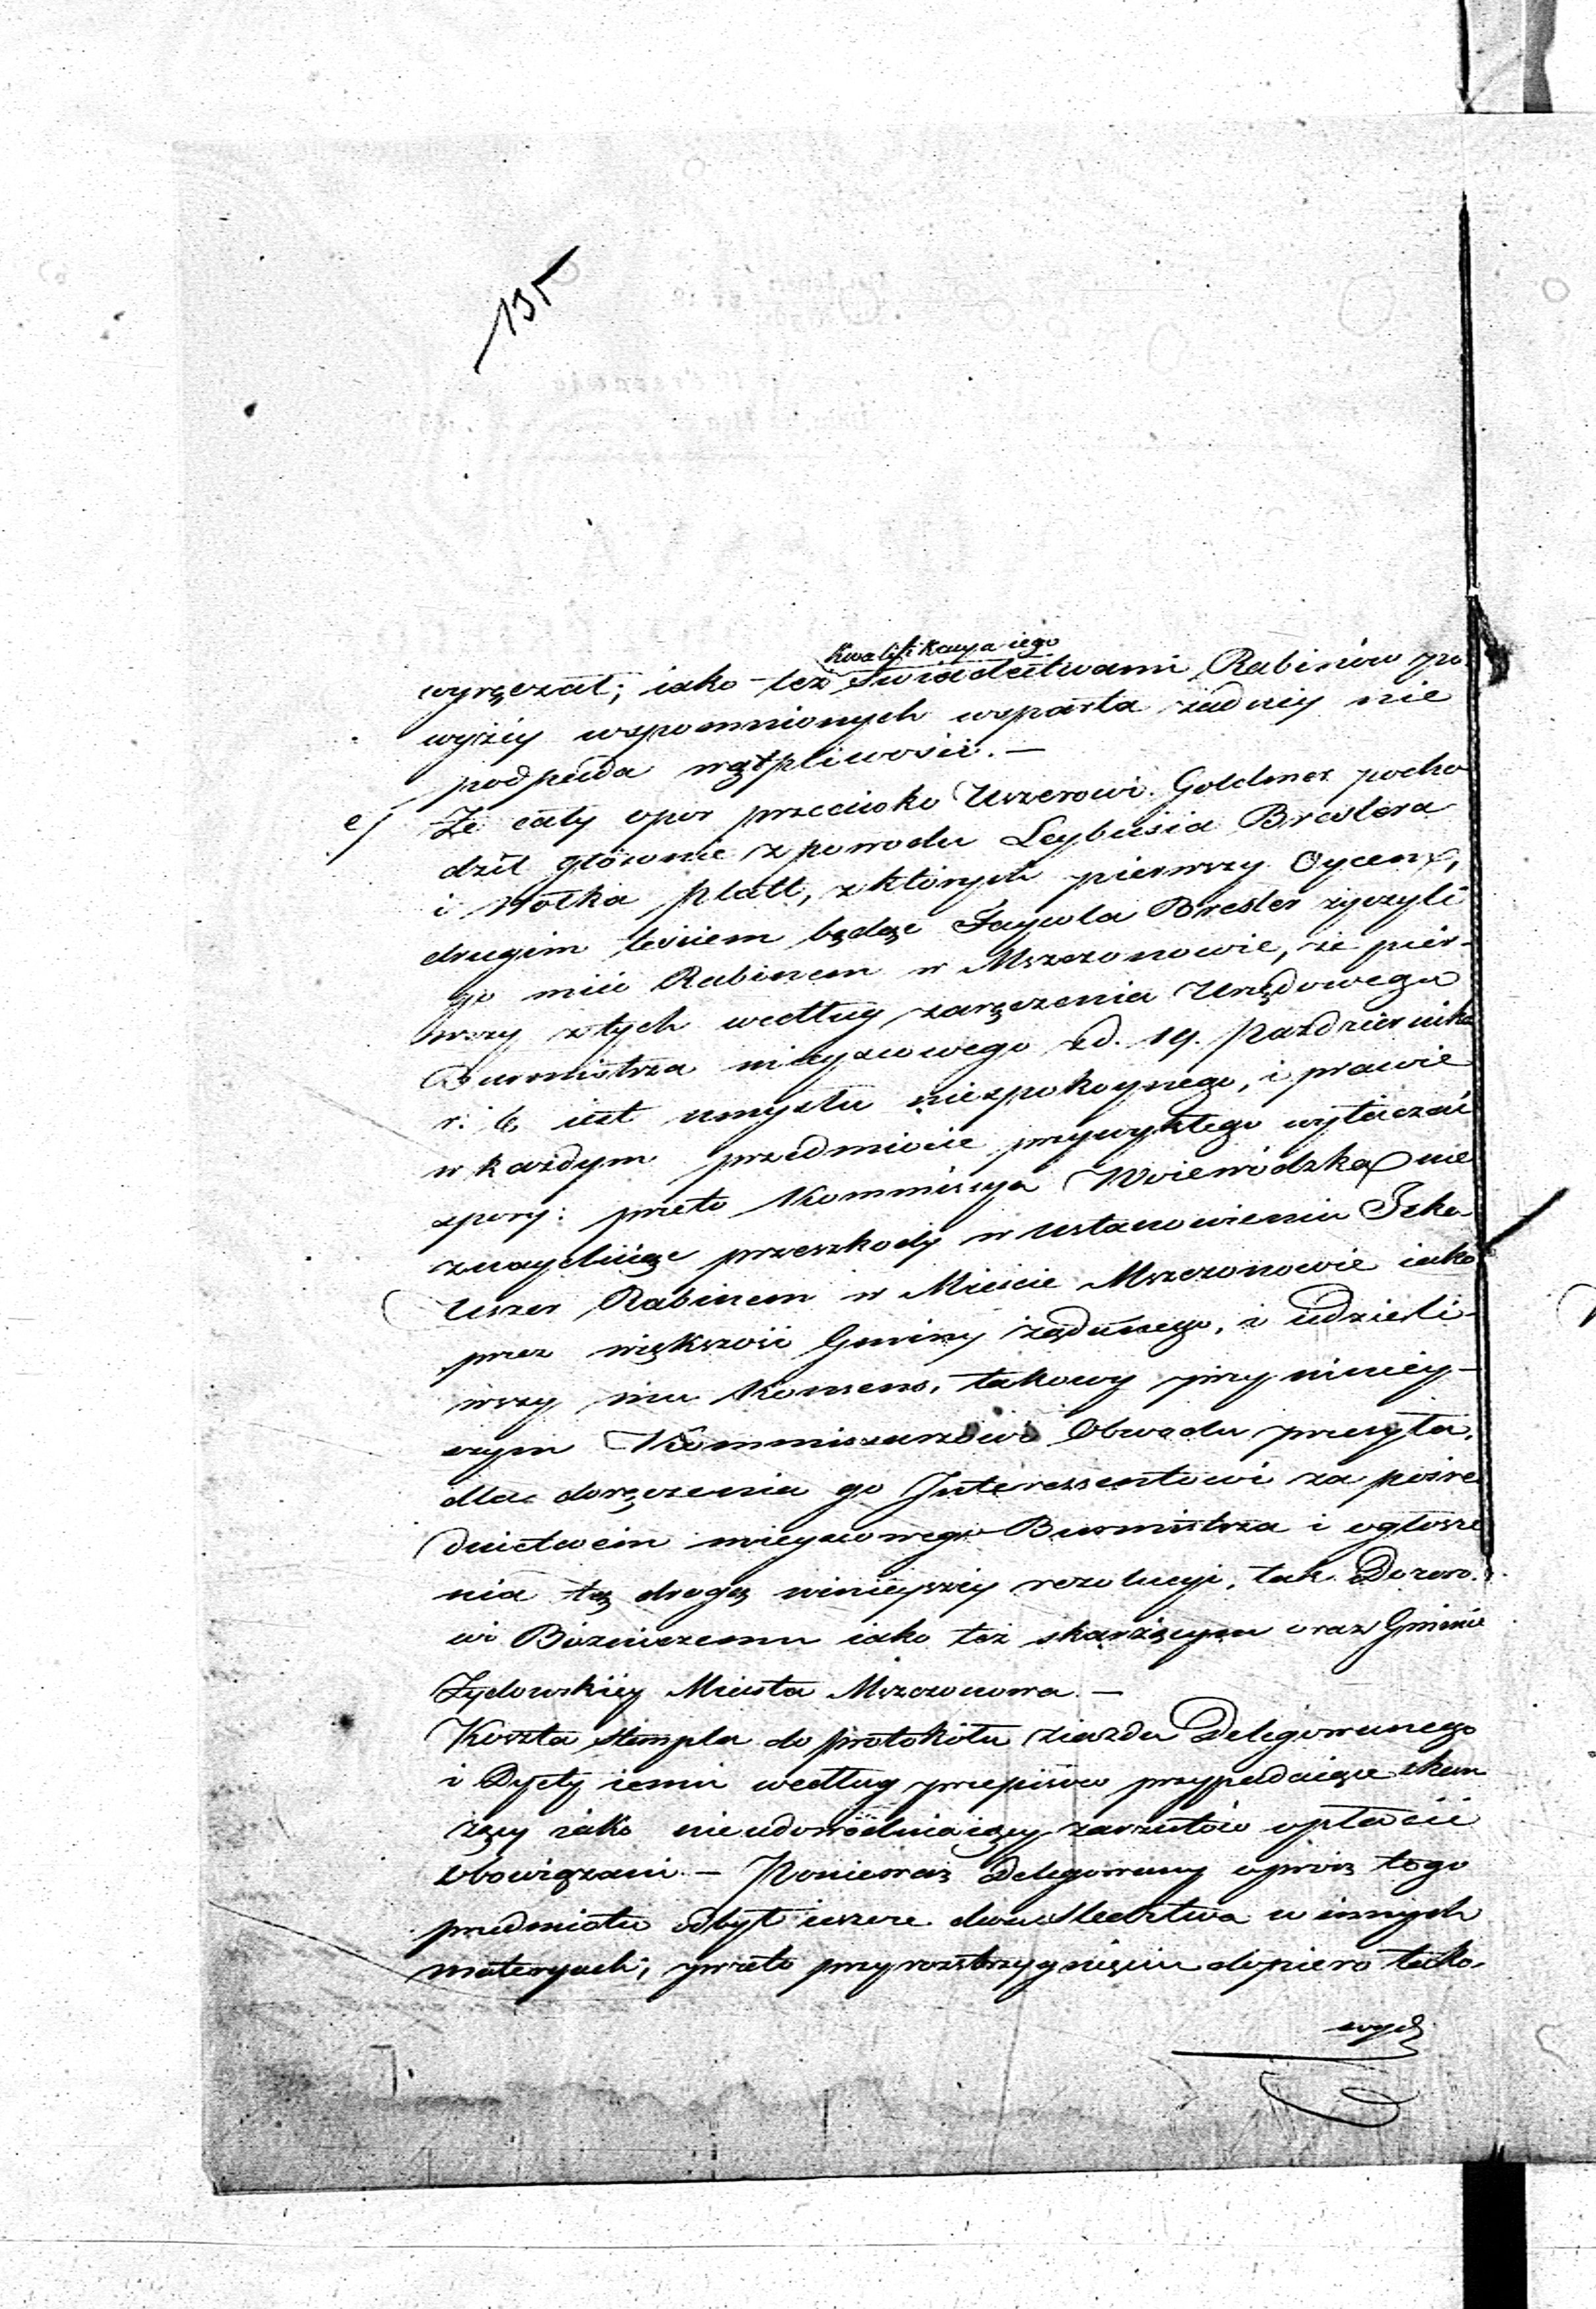 195
kwalifikacya iego
wyręczał; iako też Swiadectwami Rabinów po-
wyżéy wspomnionych wsparta żadnéy nie
podpada wątpliwości. —
e) Że cały opor przeciwko Uszerowi Goldmer pocho
dził głównie z powodu Leybusia Breslera
i Wolka Platt, z których pierwszy Oycem,
drugim teściem będąc Faywla Bresler życzyli
go mieć Rabinem w Mszczonowie, że pier-
wszy z tych według zaręczenia Urzędowego
Burmistrza mieyscowego z d. 19. Października
r. b. iest umysłu niespokoynego, i prawie
w każdym przedmiocie przywykłego wytaczać
spory: przeto Kommissya Woiewódzka nie
znayduiąc przeszkody w ustanowieniu Icka
Uszer Rabinem w Mieście Mszczonowie iako
przez większość Gminy żądanego, i udzieli-
wszy mu Konsens, takowy przy ninięy-
szym Kommissarzowi Obwodu przesyła,
dla doręczenia go Interessentowi za pośre
dnictwem mieyscowego Burmistrza i ogłosze
nia tą drogą ninieyszéy rezolucyi, tak Dozoro-
wi Bóżniczemu iako też skarżącym oraz Gminie
Żydowskiéy Miasta Mszczonowa. —
Koszta stempla do protokółu ziazdu Delegowanego
i Dyety iemu według przepisów przypadaiące skar
żący iako nieudowodniaiący zarzutów opłacić
obowiązani. — Ponieważ Delegowany oprócz tego
przedmiotu odbył ieszcze dwa Sledztwa w innych
materyach; przeto przy rozstrzygnięciu dopiero tako-
wych